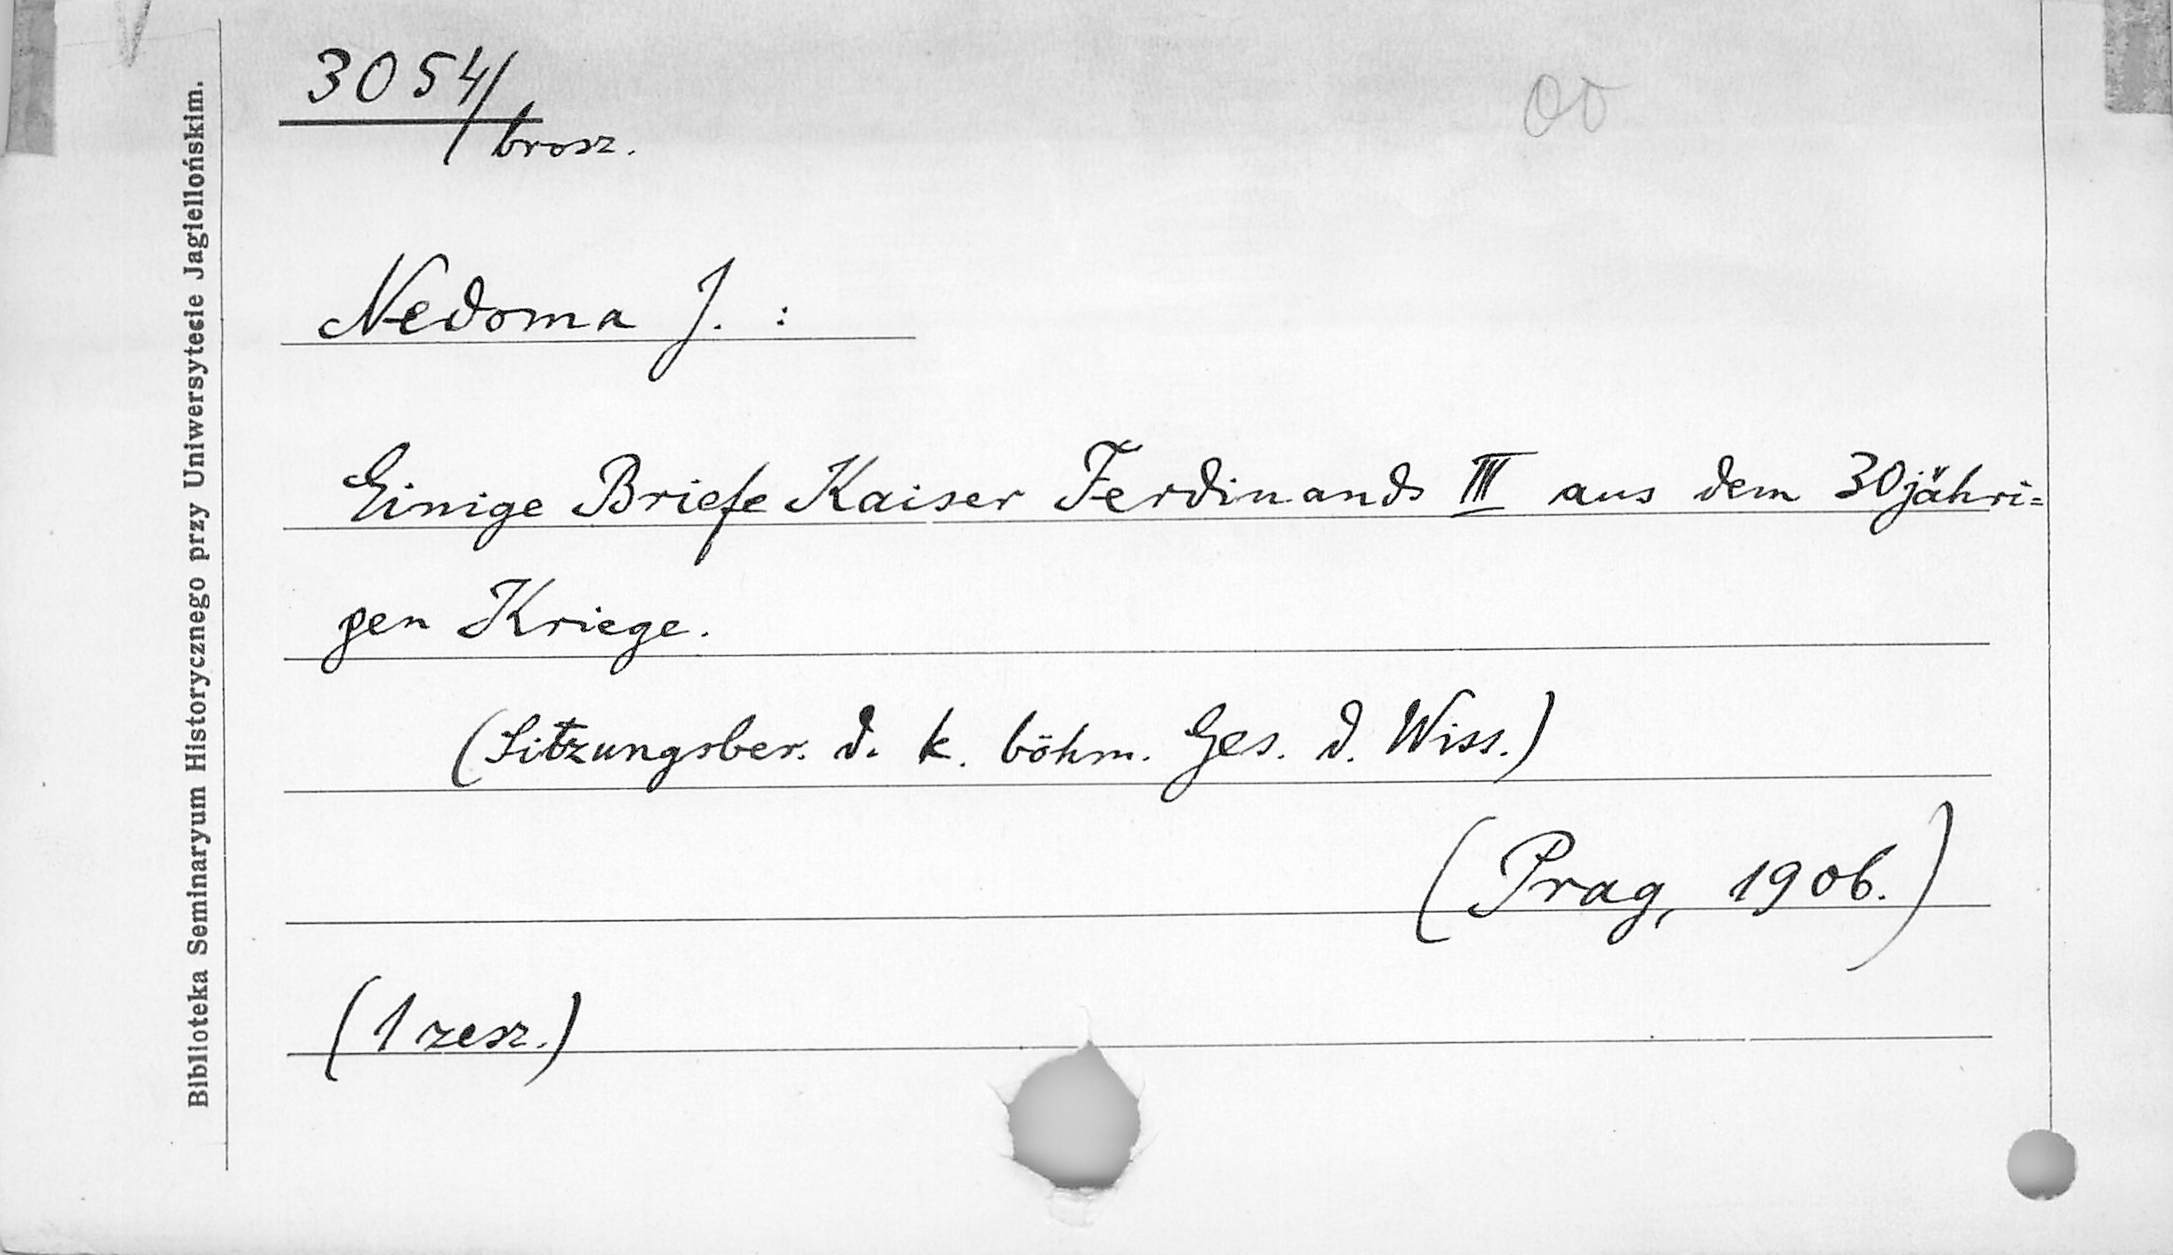 3054/brosz.
00
Nedoma J. :
Einige Briefe Kaiser Ferdinands III aus dem 30jähri=
gen Kriege.
(Sitzungsber. d. k. böhm. Ges. d. Wiss.)
(Prag, 1906.)
(1 zesz.)
Biblioteka Seminaryum Historycznego przy Uniwersytecie Jagiellońskim.